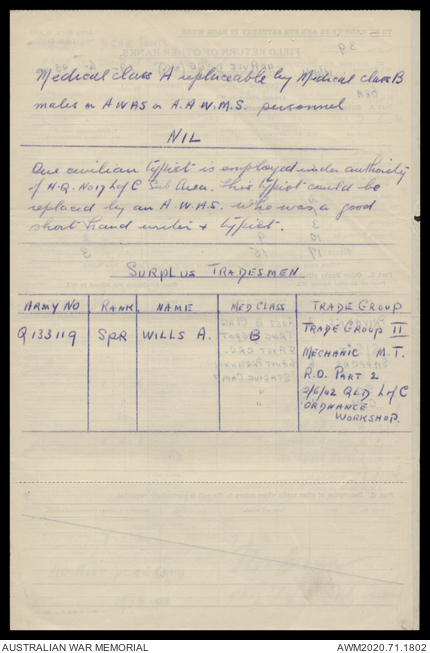 Medical class A replaceable by Medical class B
males or A.W.A.S or A.A.W.M.S. personnel
NIL
One civilian typist is employed under authority
of H.Q. No 17 L of C Sub Area. This typist could be
replaced by an A.W.A.S. who was a good
short hand writer & typist.
SURPLUS TRADESMEN
ARMY NO RANK NAME MED CLASS TRADE GROUP
Q133119 SPR WILLS A. B TRADE GROUP II
MECHANIC M.T.
R.O. PART 2
2/6/42 QLD L of C
ORDNANCE
WORKSHOP.
AUSTRALIAN WAR MEMORIAL
AWM2020.71.1802